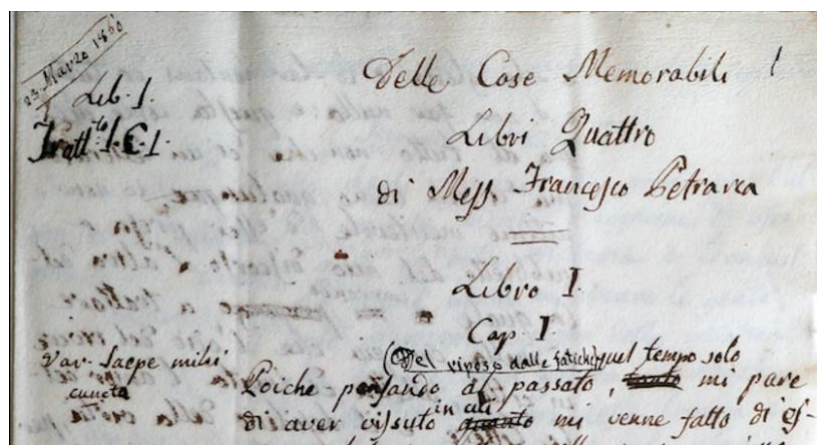 23 Marzo 1860
Lib. I.
Tratt.to I. C. I.
Delle Cose Memorabili
Libri Quattro
di Mess. Francesco Petrarca
Libro I.
Cap. I.
(Del riposo dalle fatiche) quel tempo solo
Var. Saepe mihi
cuncta
Poiche pensando al passato, tanto mi pare
in cui
di aver vissuto quanto mi venne fatto di es-